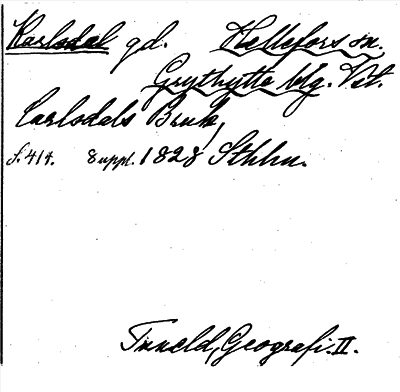 Karlsdal gd. Hellefors sn.
Grythytte blg. Vstm.
Carlsdals Bruk,
s. 414. Suppl. 1828 Sthlm.
Tuneld, Geografi. II.